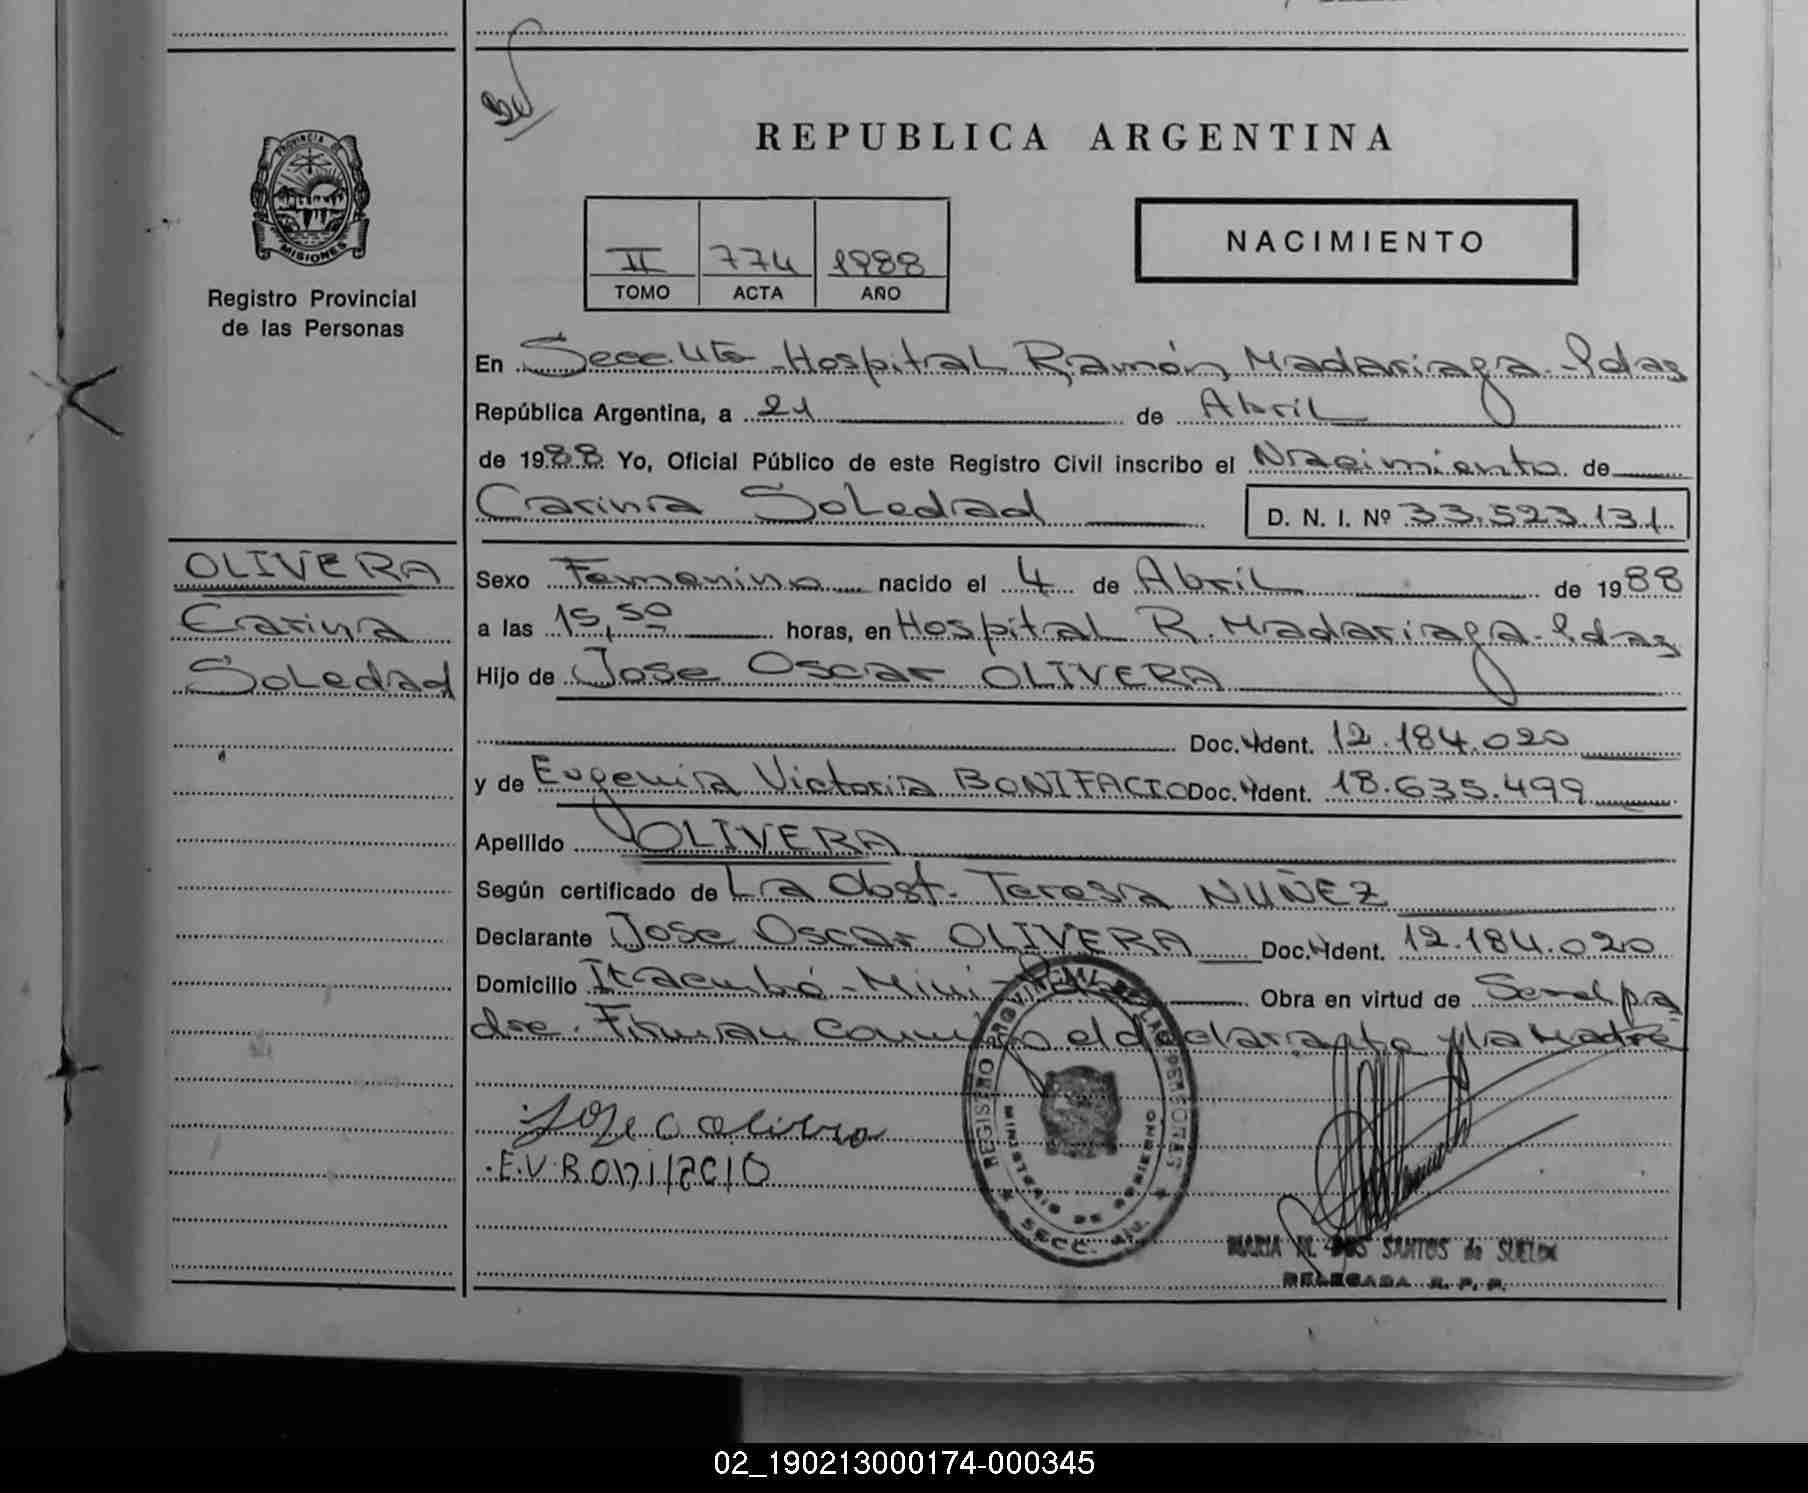 REPUBLICA ARGENTINA
PROVINCIA DE
MISIONES
Registro Provincial
de las Personas
II 774 1988
TOMO ACTA AÑO
NACIMIENTO
En Secc. 4ta Hospital Ramón Madariaga - Pdas
República Argentina, a 21 de Abril
de 1988 Yo, Oficial Público de este Registro Civil inscribo el Nacimiento de
Carina Soledad D. N. I. Nº 33.523.131
OLIVERA
Carina
Soledad
Sexo Femenino nacido el 4 de Abril de 1988
a las 15,50 horas, en Hospital R. Madariaga - Pdas
Hijo de Jose Oscar OLIVERA
Doc. Ident. 12.184.020
y de Eugenia Victoria BONIFACIO Doc. Ident. 18.635.499
Apellido OLIVERA
Según certificado de La Obst. Teresa NUÑEZ
Declarante Jose Oscar OLIVERA Doc. Ident. 12.184.020
Domicilio Itaembé - Mini - Obra en virtud de Ser el pa
dre. Firman conmigo el declarante y la Madre
Jose O olivera
E.V.BONIFACIO
REGISTRO PROVINCIAL DE LAS PERSONAS
MINISTERIO DE GOBIERNO
SECC. 4ta.
MARIA DOS SANTOS de
DELEGADA R. P. P.
02_190213000174-000345